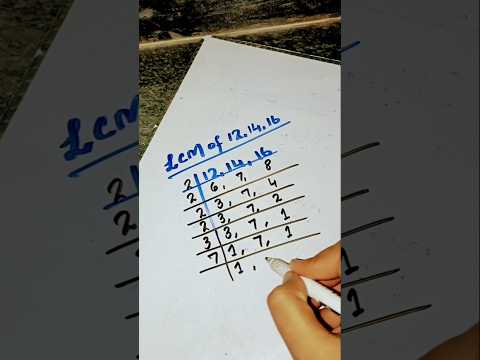 LCM of 12,14,16
2 | 12, 14, 16
2 | 6, 7, 8
2 | 3, 7, 4
2 | 3, 7, 2
3 | 3, 7, 1
7 | 1, 7, 1
| 1,